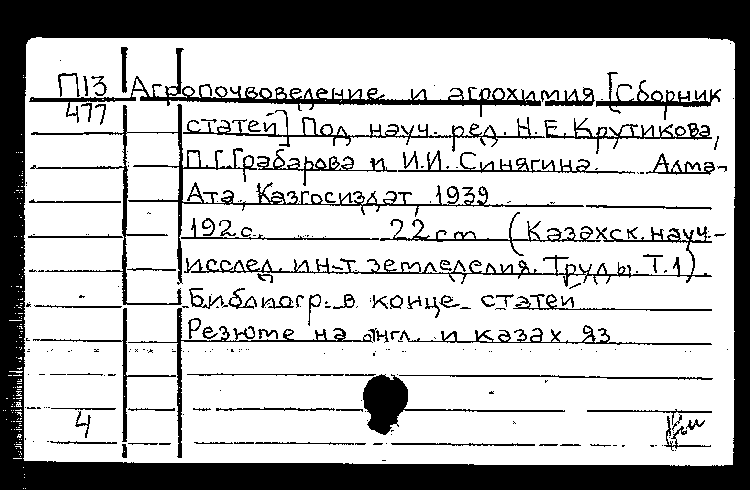 П13 Агропочвоведение и агрохимия [Сборник
477 статей] Под науч. ред. Н.Е.Крутикова,
П.Г.Грабарова и И.И.Синягина. Алма-
Ата, Казгосиздат, 1939
192с. 22cm (Казахск.науч-
исслед. ин-т земледелия. Труды. Т.1).
Библиогр. в конце статей
Резюме на англ. и казах. яз
4